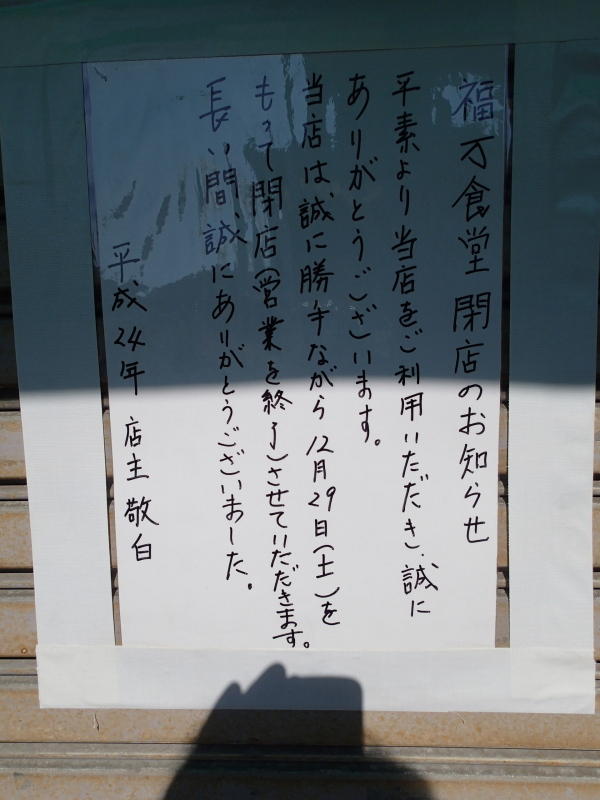 福万食堂 閉店のお知らせ
平素より当店をご利用いただき、誠に
ありがとうございます。
当店は、誠に勝手ながら 12月29日(土)を
もって閉店(営業を終了)させていただきます。
長い間、誠にありがとうございました。
平成24年 店主 敬白